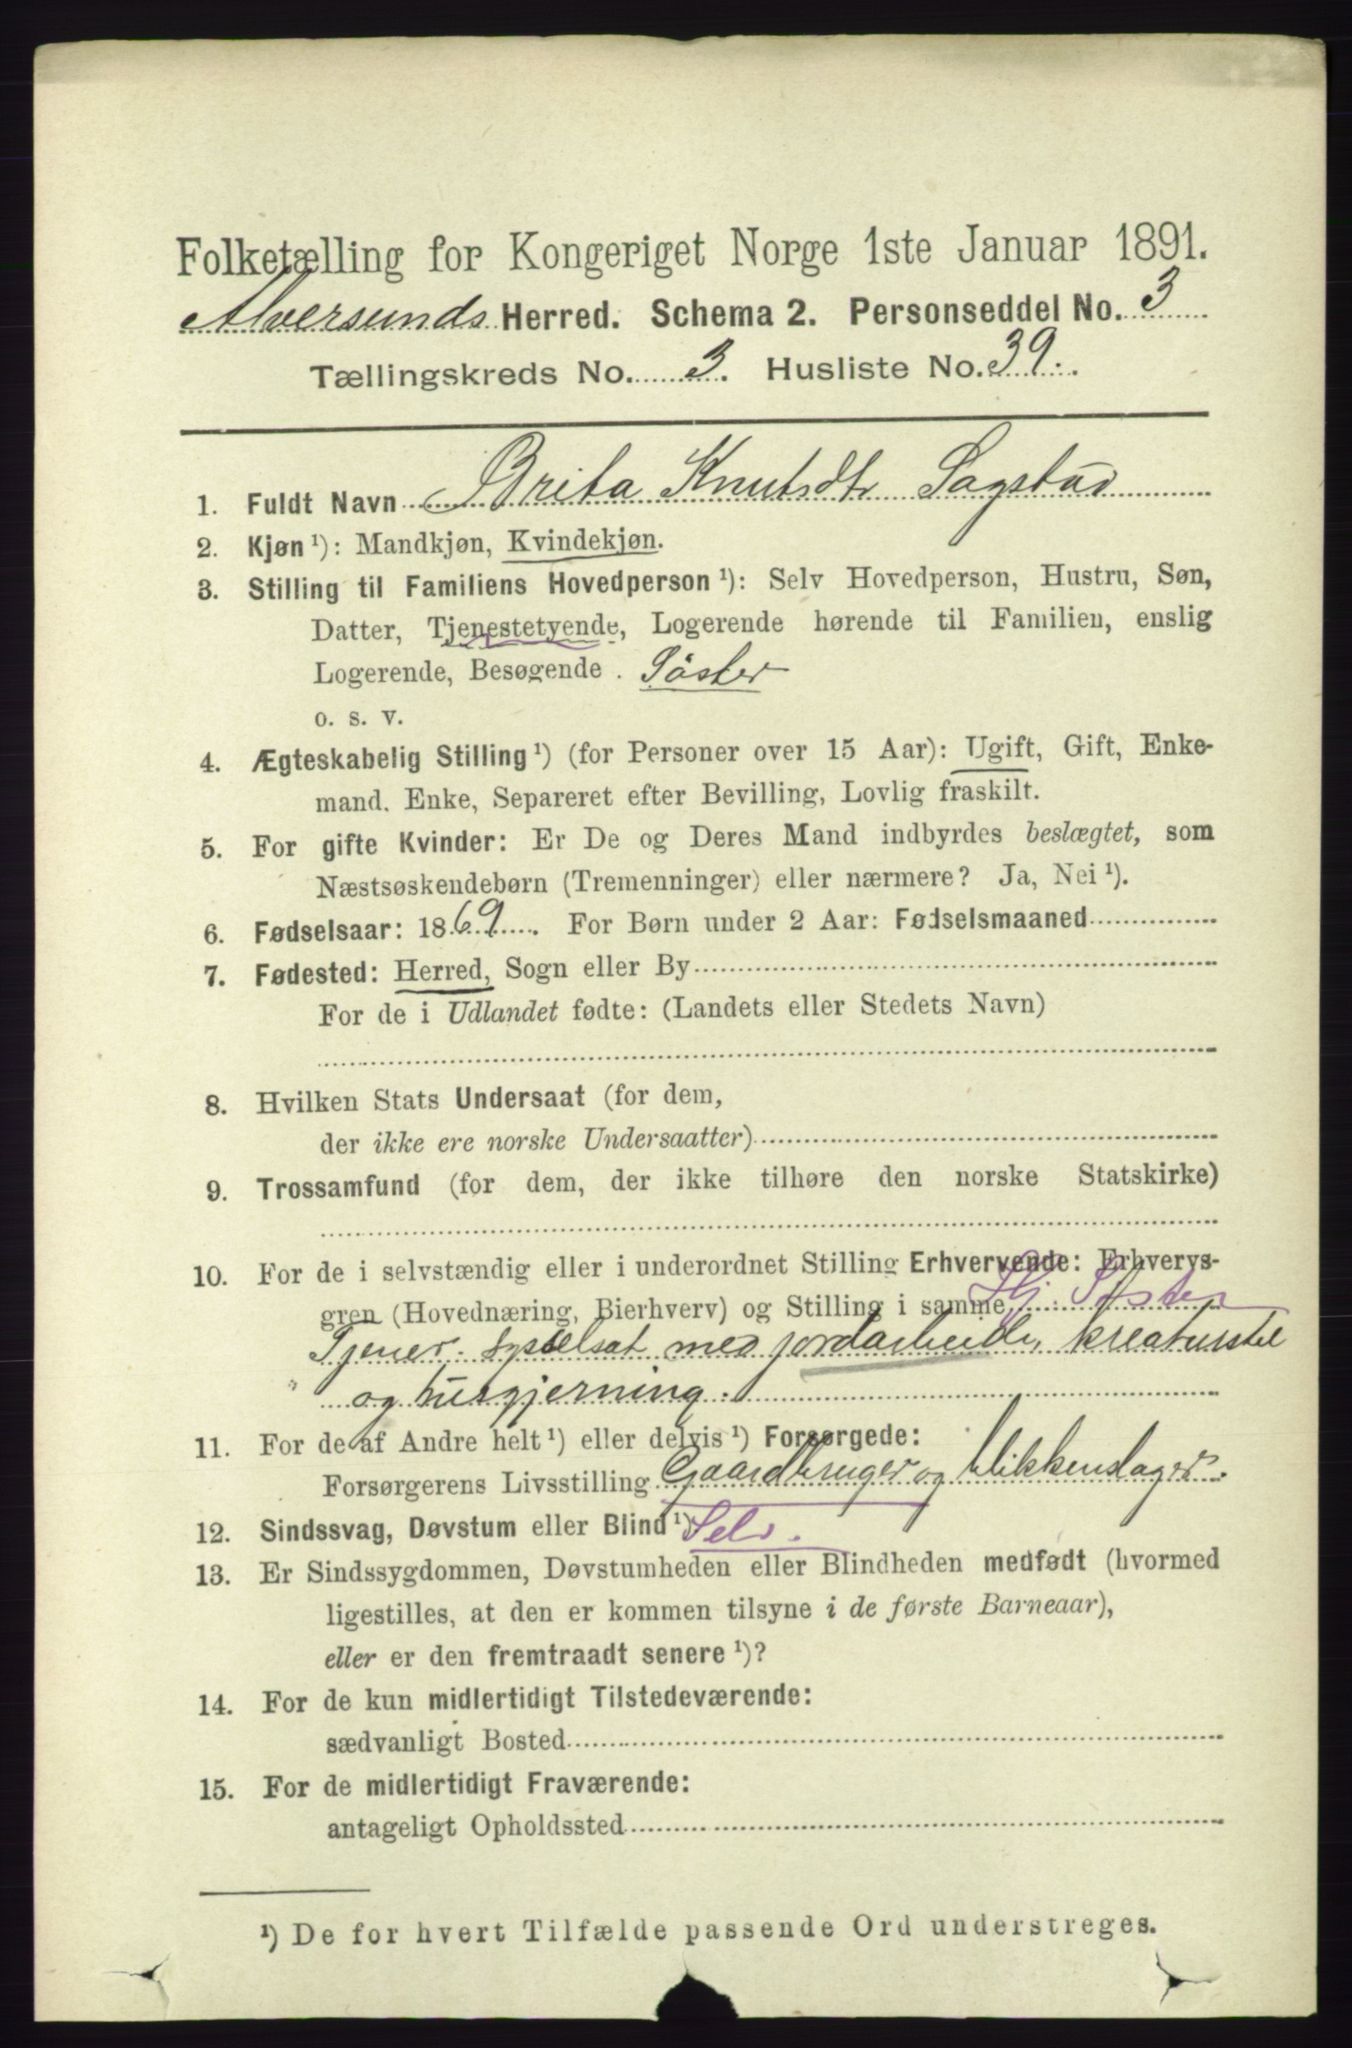 Folketælling for Kongeriget Norge 1ste Januar 1891.
Alversunds Herred. Schema 2. Personseddel No. 3
Tællingskreds No. 3. Husliste No. 39.
1. Fuldt Navn Brita Knutsdtr Sagstad
2. Kjøn ¹): Mandkjøn, Kvindekjøn.
3. Stilling til Familiens Hovedperson ¹): Selv Hovedperson, Hustru, Søn,
Datter, Tjenestetyende, Logerende hørende til Familien, enslig
Logerende, Besøgende . Söster
o. s. v.
4. Ægteskabelig Stilling ¹) (for Personer over 15 Aar): Ugift, Gift, Enke-
mand. Enke, Separeret efter Bevilling, Lovlig fraskilt.
5. For gifte Kvinder: Er De og Deres Mand indbyrdes beslægtet, som
Næstsøskendebørn (Tremenninger) eller nærmere? Ja, Nei ¹).
6. Fødselsaar: 1869. For Børn under 2 Aar: Fødselsmaaned
7. Fødested: Herred, Sogn eller By
For de i Udlandet fødte: (Landets eller Stedets Navn)
8. Hvilken Stats Undersaat (for dem,
der ikke ere norske Undersaatter)
9. Trossamfund (for dem, der ikke tilhøre den norske Statskirke)
10. For de i selvstændig eller i underordnet Stilling Erhvervende: Erhvervs-
gren (Hovednæring, Bierhverv) og Stilling i samme Hj. Söster
Tjener. sysselsat med jordarbeide, kreaturstel
og husgjerning.
11. For de af Andre helt ¹) eller delvis ¹) Forsørgede:
Forsørgerens Livsstilling Gaardbruger og blikkenslager.
12. Sindssvag, Døvstum eller Blind ¹) Selv.
13. Er Sindssygdommen, Døvstumheden eller Blindheden medfødt (hvormed
ligestilles, at den er kommen tilsyne i de første Barneaar),
eller er den fremtraadt senere ¹)?
14. For de kun midlertidigt Tilstedeværende:
sædvanligt Bosted
15. For de midlertidigt Fraværende:
antageligt Opholdssted
¹) De for hvert Tilfælde passende Ord understreges.